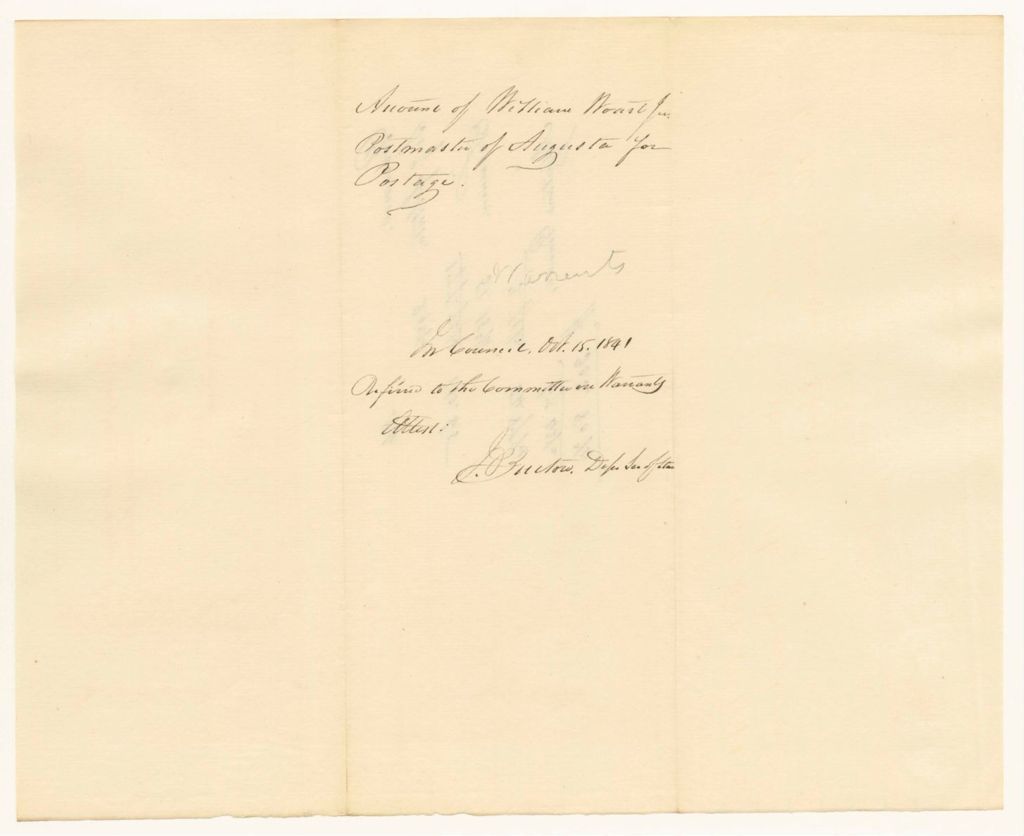 Account of William Woart Jr.
Postmaster of Augusta for
Postage.
Warrants
In Council, Oct. 15. 1841
Referred to the Committee on Warrants
Attest:
J. Burton, Depu Sec of State